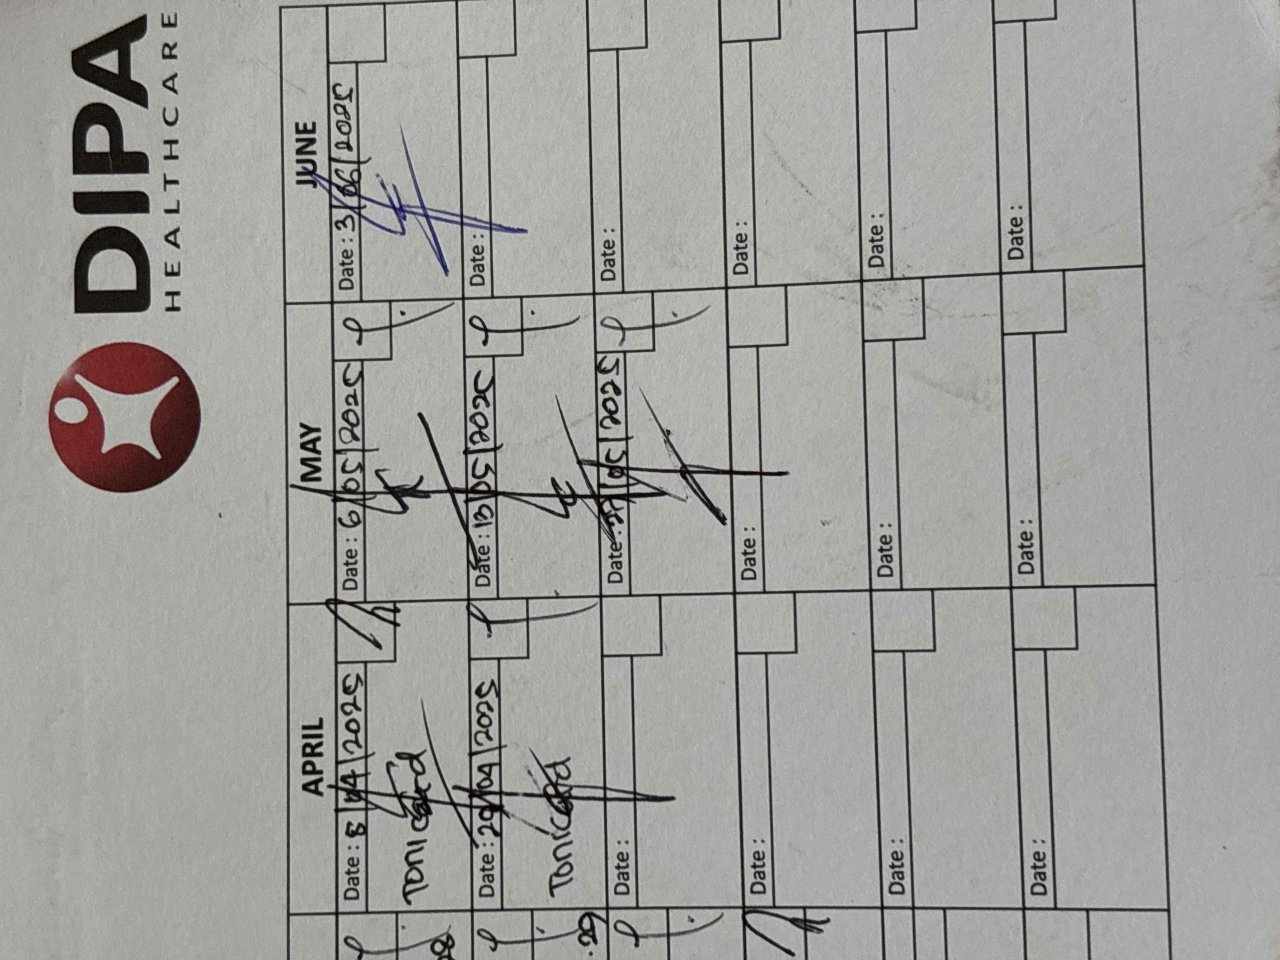 DIPA
HEALTHCARE
APRIL
Date : 8/04/2025
Tonicard
Date : 29/04/2025
Tonicard
Date :
Date :
Date :
Date :
MAY
Date : 6/05/2025
Date : 13/05/2025
Date : 27/05/2025
Date :
Date :
Date :
JUNE
Date : 3/06/2025
Date :
Date :
Date :
Date :
Date :